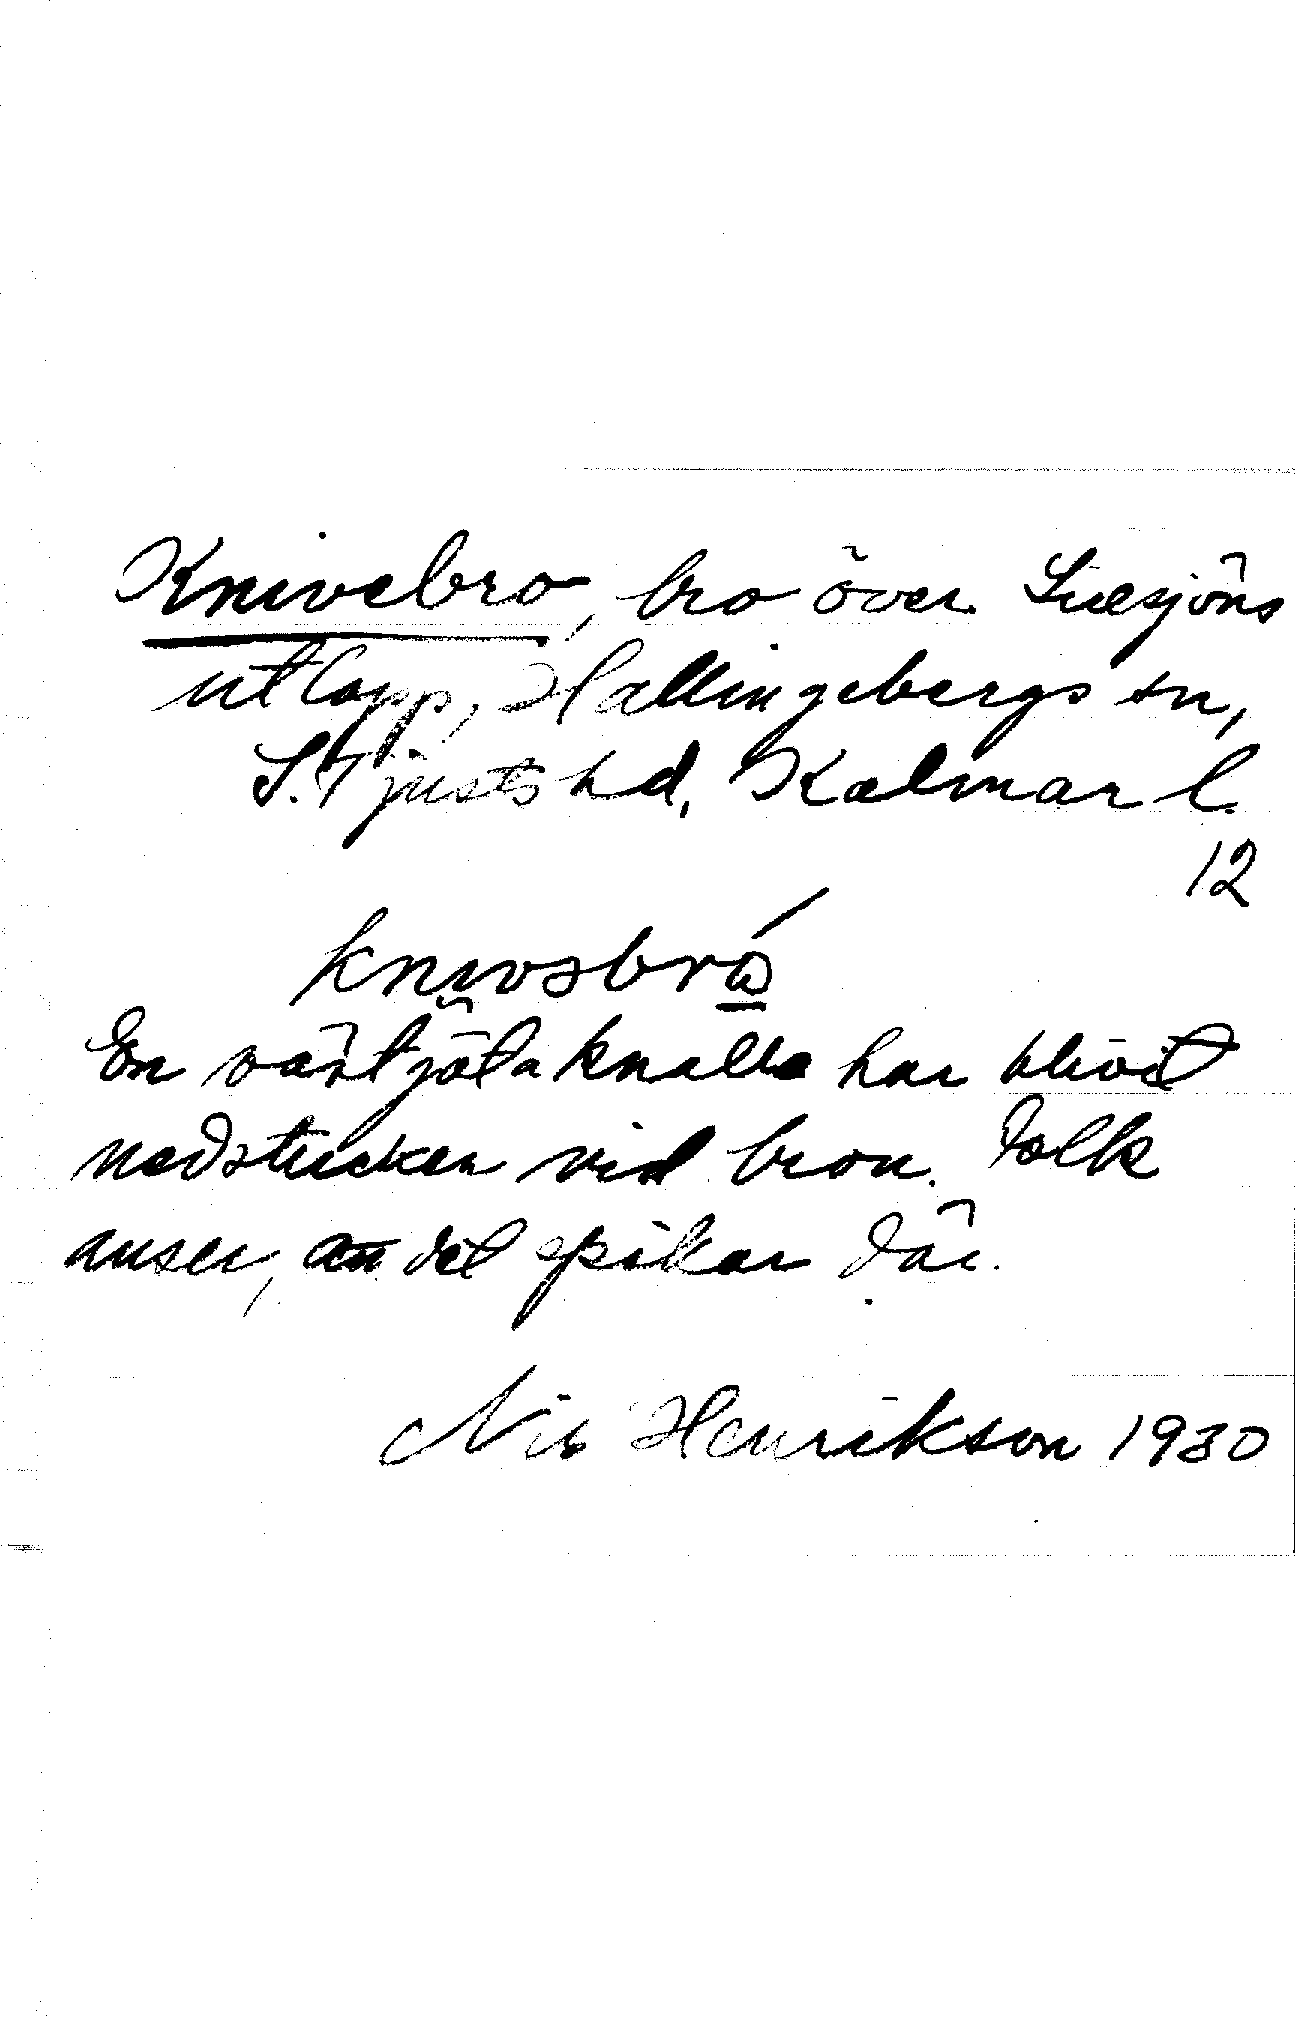 Knivebro, bro över Lillesjöns
utlopp, Hallingebergs sn,
S. Tjusts hd, Kalmar l.
12
knivəbró
En västgötaknalle har blivit
nedstucken vid bron. Folk
anser, att det spökar där.
Nils Henrikson 1930